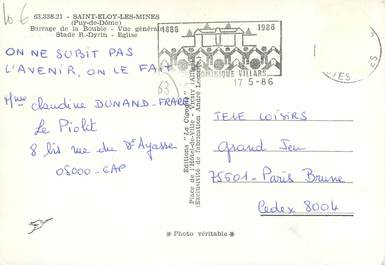 10 €
63.338.21 - SAINT-ELOY-LES-MINES
(Puy-de-Dôme)
Barrage de la Bouble - Vue générale
Stade R.-Dyrin - Eglise
ON NE SUBIT PAS
L'AVENIR, ON LE FAIT
Mme Claudine DUNAND-FRARE
Le Piolit
8 bis rue du Dr Ayasse
05000 - GAP
1886
1986
DOMINIQUE VILLARS
17-5-86
63
Editions "La Cigogne"
Place de l'Hôtel-de-Ville - VICHY (Allier)
(Exclusivité de fabrication André Leconte)
TELE LOISIRS
Grand Jeu
75501 - Paris Brune
Cedex 8004
* Photo véritable *